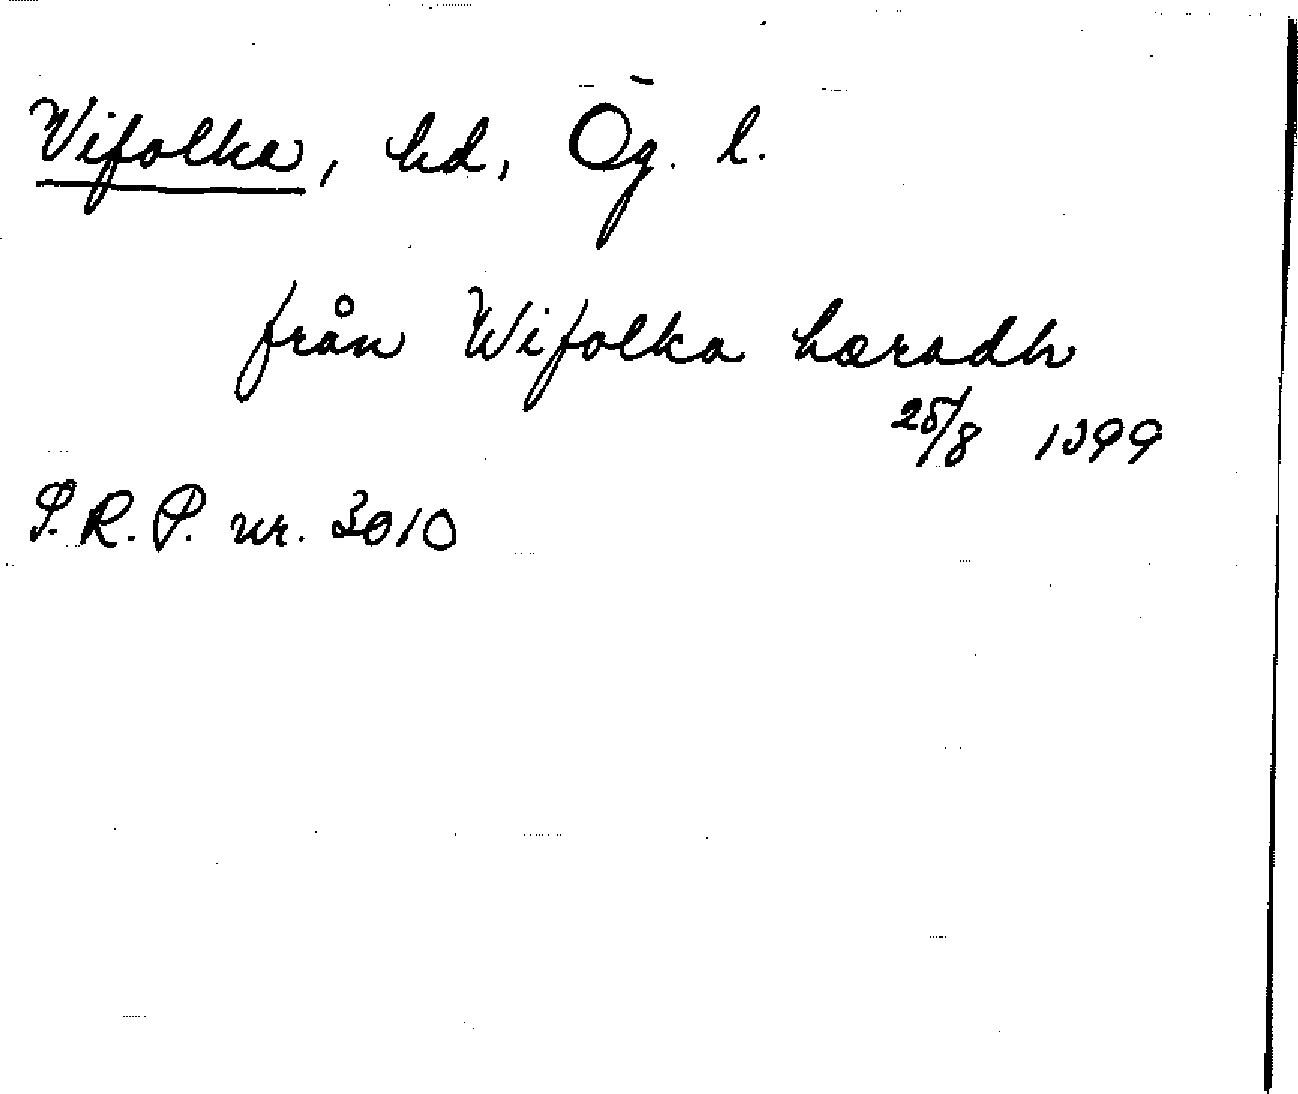 Vifolka, hd, Ög. l.
från Wifolka høradh
25/8 1399
S.R.P. nr. 3010